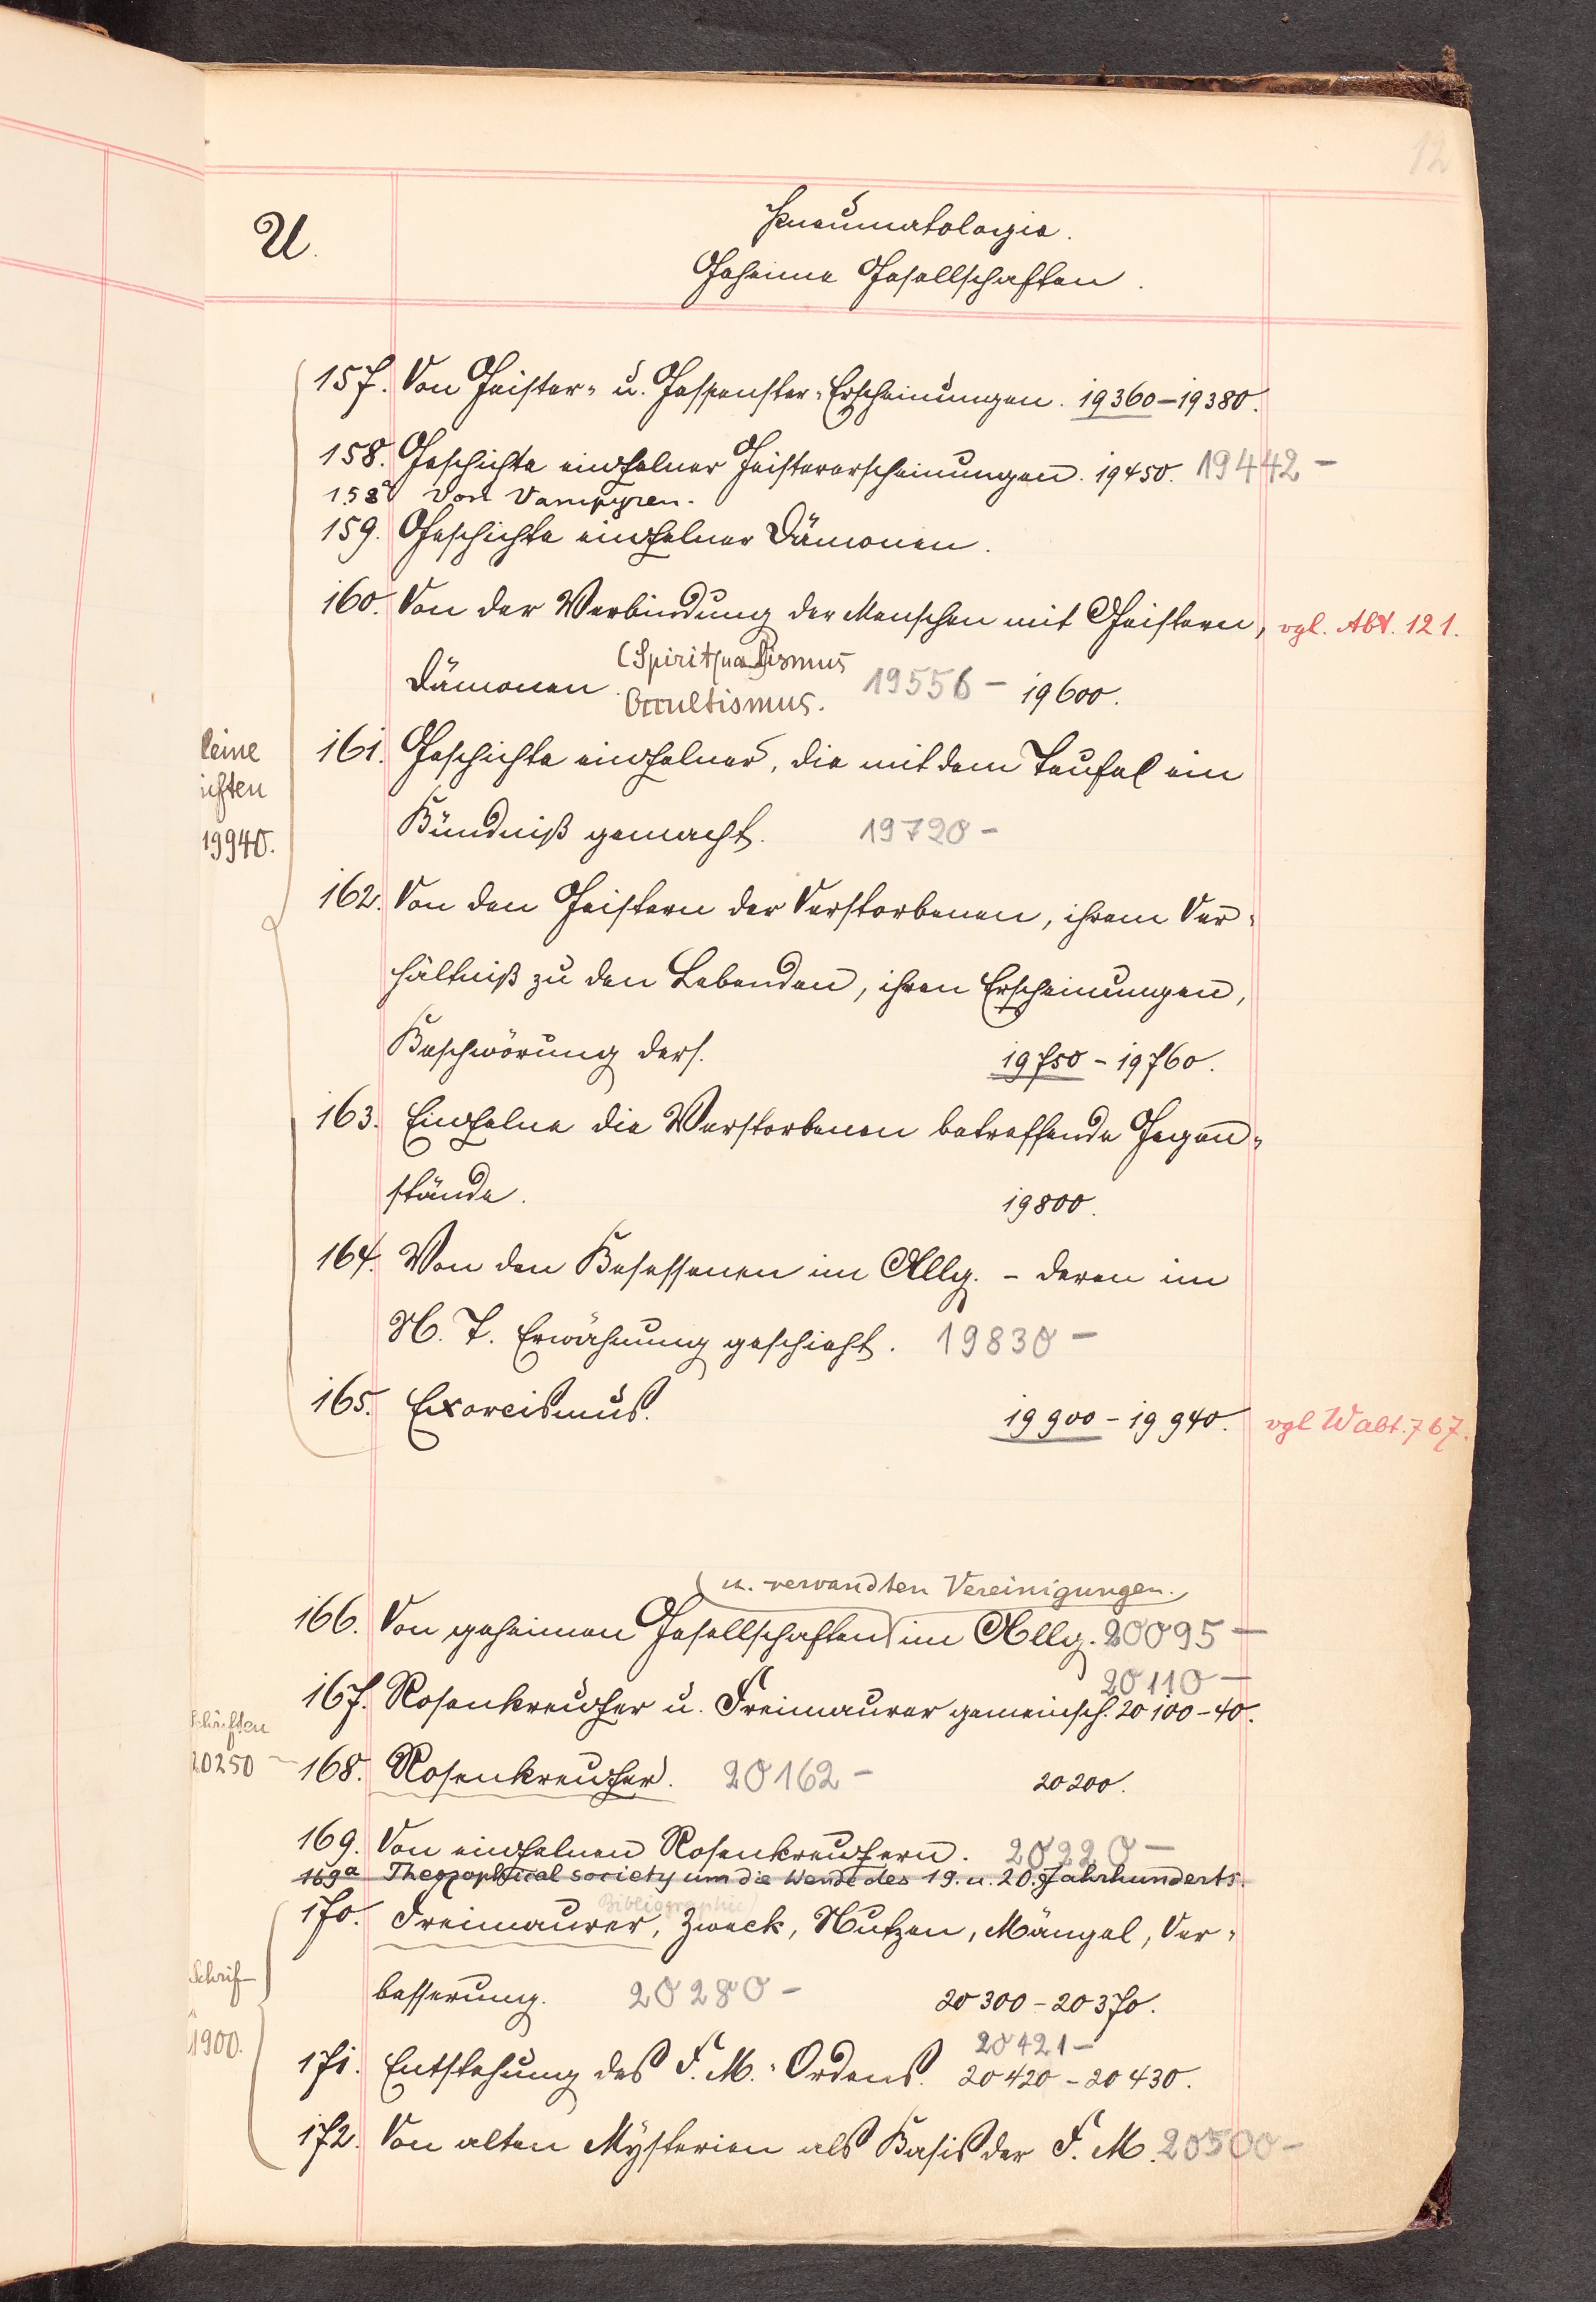 12
U.
Pneumatologie.
Geheime Gesellschaften.
157. Von Geister- u. Gespenster-Erscheinungen. 19360-19380.
158. Geschichte einzelner Geistererscheinungen. 19450. 19442-
158a Von Vampyren.
159. Geschichte einzelner Dämonen.
160. Von der Verbindung der Menschen mit Geistern, vgl. Abt. 121.
(Spirit(ual)ismus
Dämonen. 19556- 19600.
Occultismus.
161. Geschichte einzelner, die mit dem Teufel ein
leine
iften
Bündniß gemacht. 19720-
19940.
162. Von den Geistern der Verstorbenen, ihrem Ver-
hältniß zu den Lebenden, ihren Erscheinungen,
Beschwörung ders. 19750-19760.
163. Einzelne die Verstorbenen betreffende Gegen-
stände. 19800.
164. Von den Besessenen im Allg. - deren im
N. T. Erwähnung geschieht. 19830-
165. Exorcismus. 19900-19940. vgl W abt. 767.
u. verwandten Vereinigungen.
166. Von geheimen Gesellschaften im Allg. 20095-
20110-
167. Rosenkreuzer u. Freimaurer gemeinsch. 20100-40.
schriften
20250 - 168. Rosenkreuzer. 20162- 20200.
169. Von einzelnen Rosenkreuzern. 20220-
169a Theosophical society um die Wende des 19. u. 20. Jahrhunderts.
Bibliographie)
170. Freimaurer, Zweck, Nutzen, Mängel, Ver-
Schrif-
besserung. 20280- 20300-20370.
1900.
20421-
171. Entstehung des F. M.-Ordens. 20420-20430.
172. Von alten Mysterien als Basis der F. M. 20500-